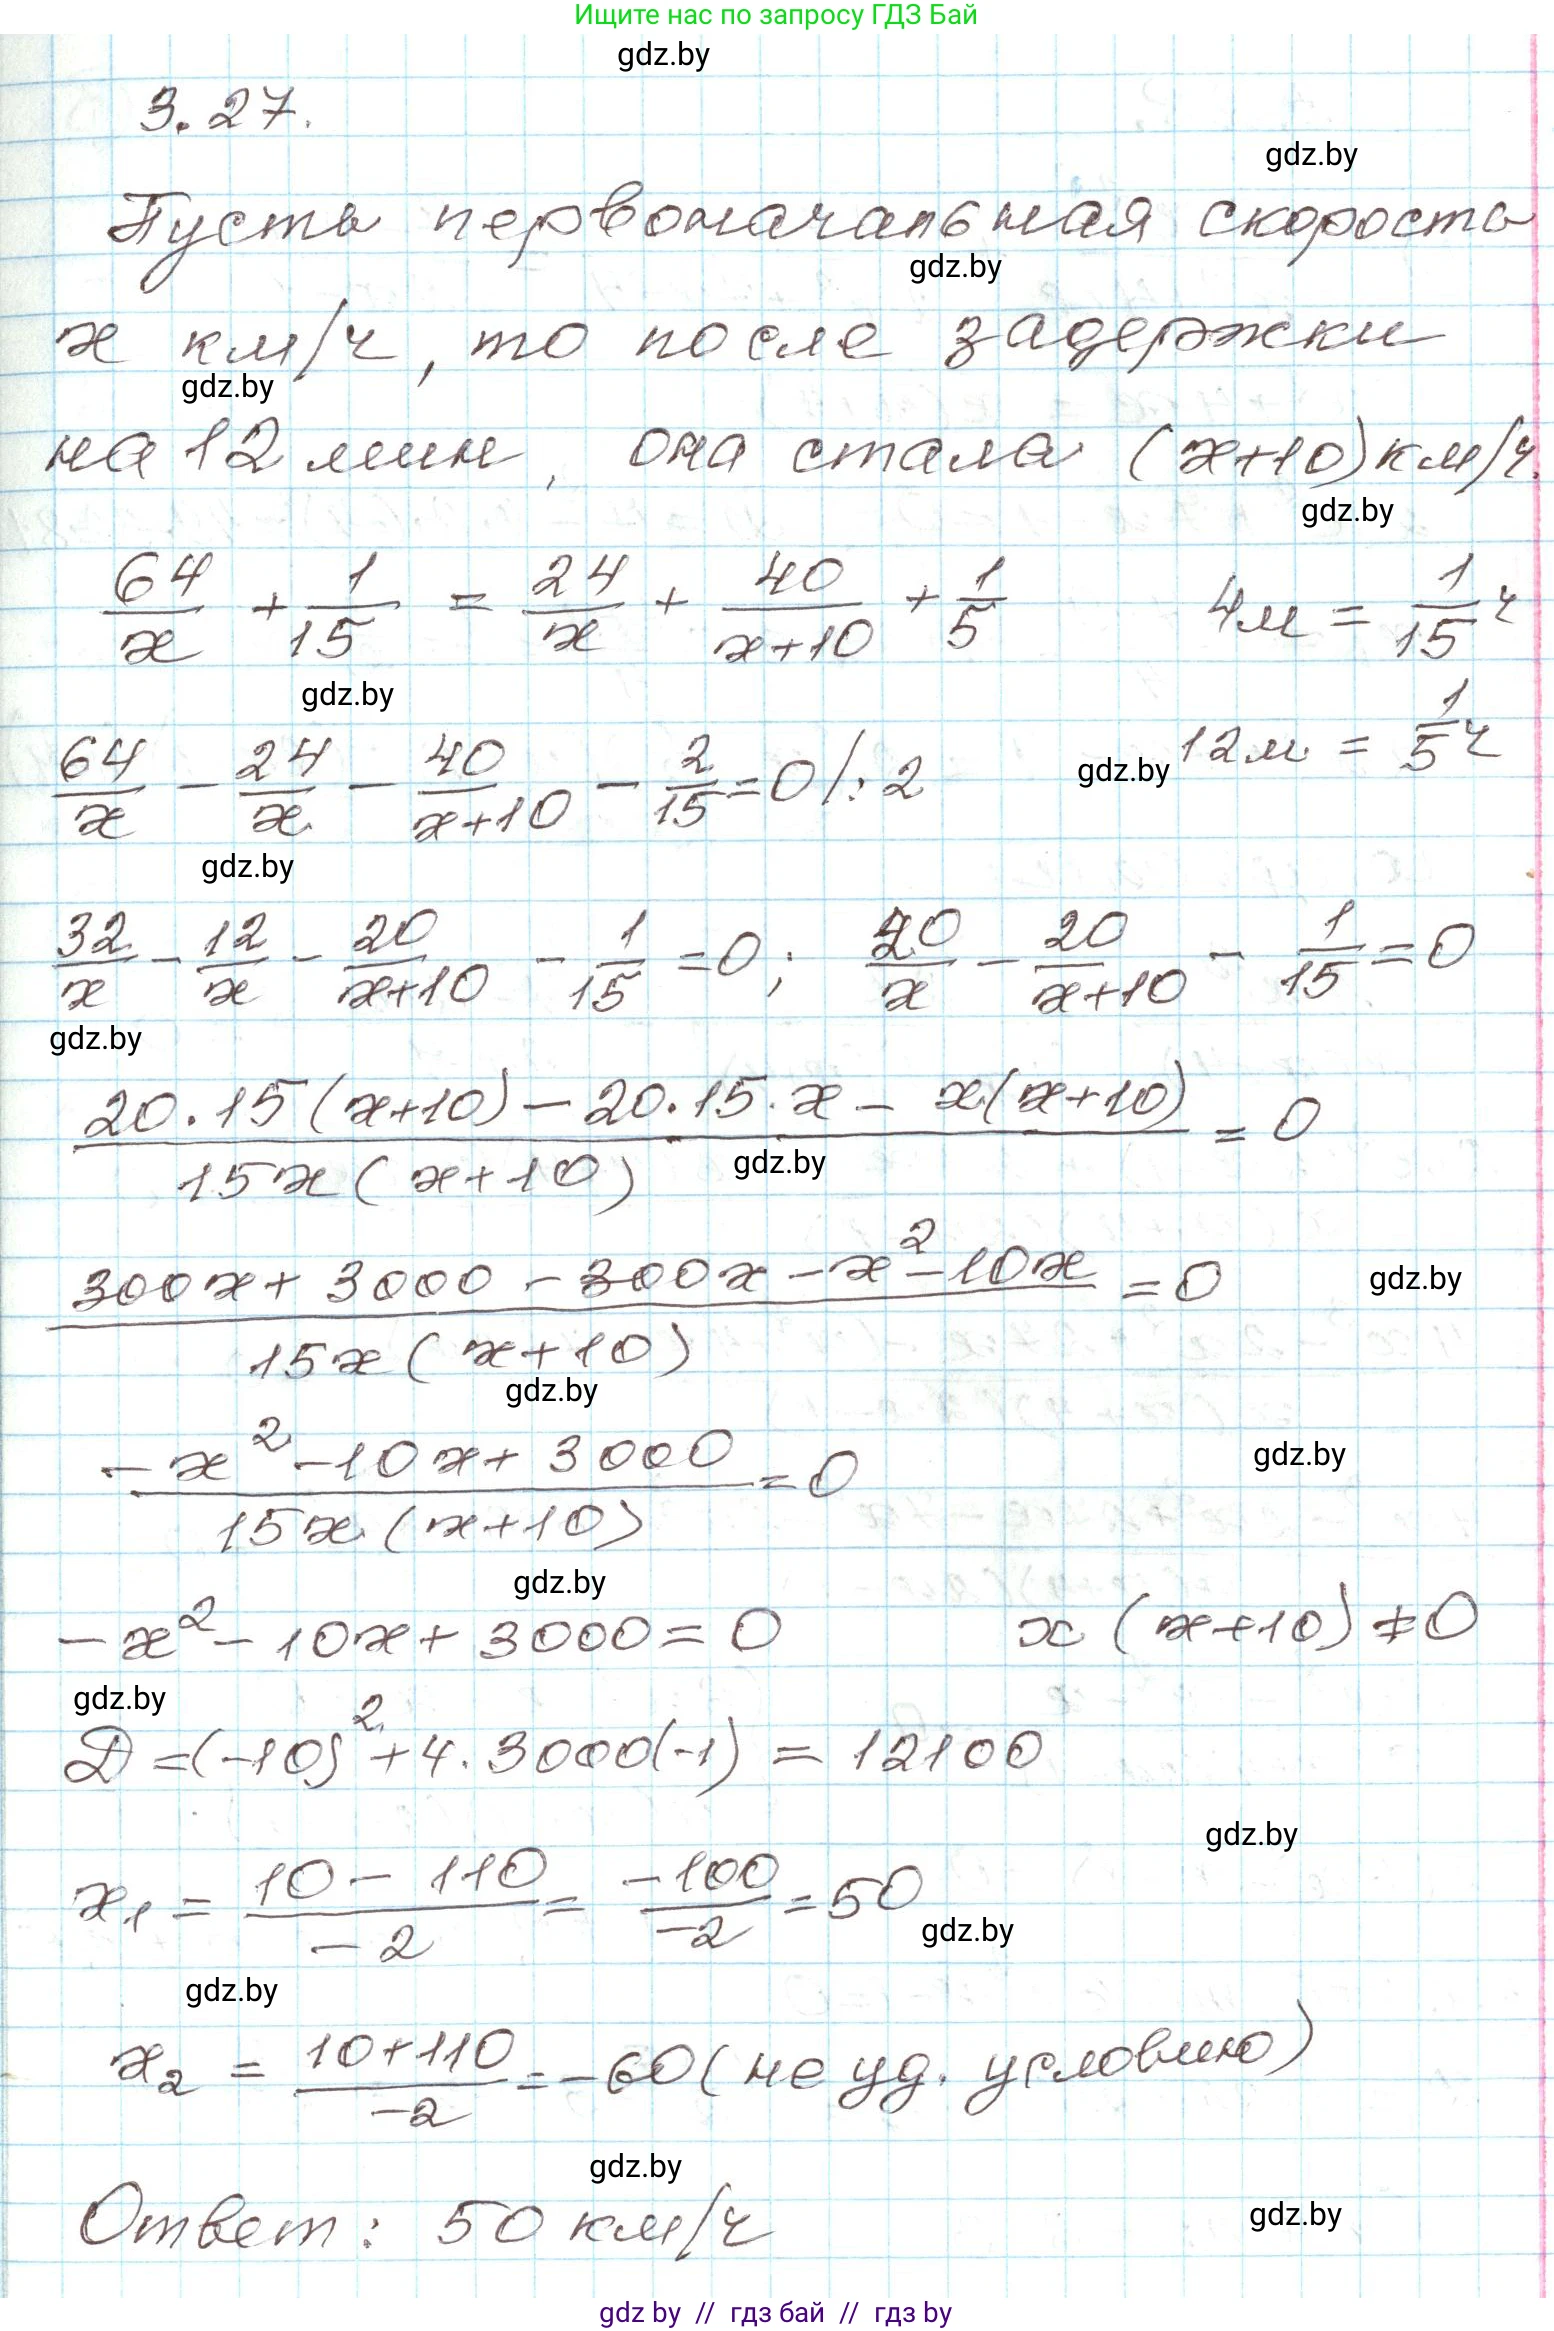 Ищите нас по запросу ГДЗ Бай
gdz.by
3.27.
gdz.by
Пусть первоначальная скорость
gdz.by
x км/ч, то после задержки
gdz.by
на 12 мин, она стала (x+10) км/ч.
gdz.by
64/x + 1/15 = 24/x + 40/(x+10) + 1/5    4м = 1/15 ч
gdz.by
64/x - 24/x - 40/(x+10) - 2/15 = 0 /:2    12м = 1/5 ч
gdz.by
gdz.by
32/x - 12/x - 20/(x+10) - 1/15 = 0; 20/x - 20/(x+10) - 1/15 = 0
gdz.by
(20·15(x+10) - 20·15·x - x(x+10)) / (15x(x+10)) = 0
gdz.by
(300x + 3000 - 300x - x² - 10x) / (15x(x+10)) = 0
gdz.by
gdz.by
(-x² - 10x + 3000) / (15x(x+10)) = 0
gdz.by
gdz.by
-x² - 10x + 3000 = 0    x(x+10) ≠ 0
gdz.by
D = (-10)² + 4·3000(-1) = 12100
gdz.by
x₁ = (10 - 110)/(-2) = -100/-2 = 50
gdz.by
gdz.by
x₂ = (10+110)/(-2) = -60 (не уд. условию)
gdz.by
gdz.by
Ответ: 50 км/ч
gdz by // гдз бай // гдз by